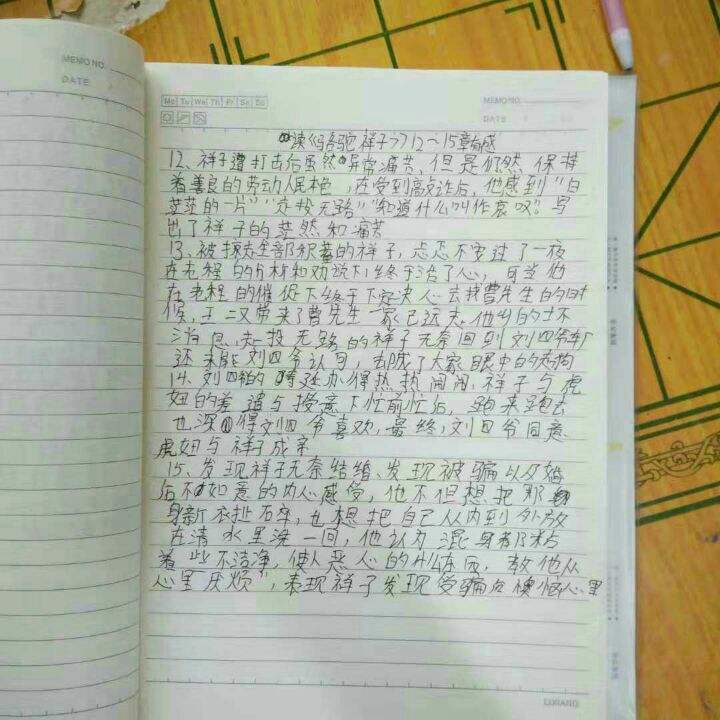 MEMO NO.
DATE
Mo Tu We Th Fr Sa Su
MEMO NO.
DATE
读《骆驼祥子》12~15章有感
12、祥子遭打击后虽然异常痛苦,但是仍然保持
着善良的劳动人民本色,在受到敲诈后,他感到“白
茫茫的一片”“走投无路”“知道什么叫作哀叹”写
出了祥子的茫然和痛苦
13、被掠走全部积蓄的祥子,忐忑不安过了一夜
在老程的分析和劝说下终于治了心,
在老程的催促下终于下定决心去找曹先生的时
候,王二又带来了曹先生一家已远走他出的坏
消息,走投无路的祥子无奈回到刘四爷车厂
还未能刘四爷认可,却成了大家眼中的
14、刘四爷的 诞办得热热闹闹,祥子与虎
妞的差遣与授意下忙前忙后,跑来跑去
也深得刘四爷喜欢,最终,刘四爷同意
虎妞与祥子成亲
15、发现祥子无奈结婚、发现被骗以及婚
后不如意的内心感受,他不但想把那
身新衣扯碎,也想把自己从内到外放
在清水里洗一回,他认为混身都粘
着些不洁净,使人恶心的什么东西,教他从
心里厌烦”,表现祥子发现受骗后懊恼心里